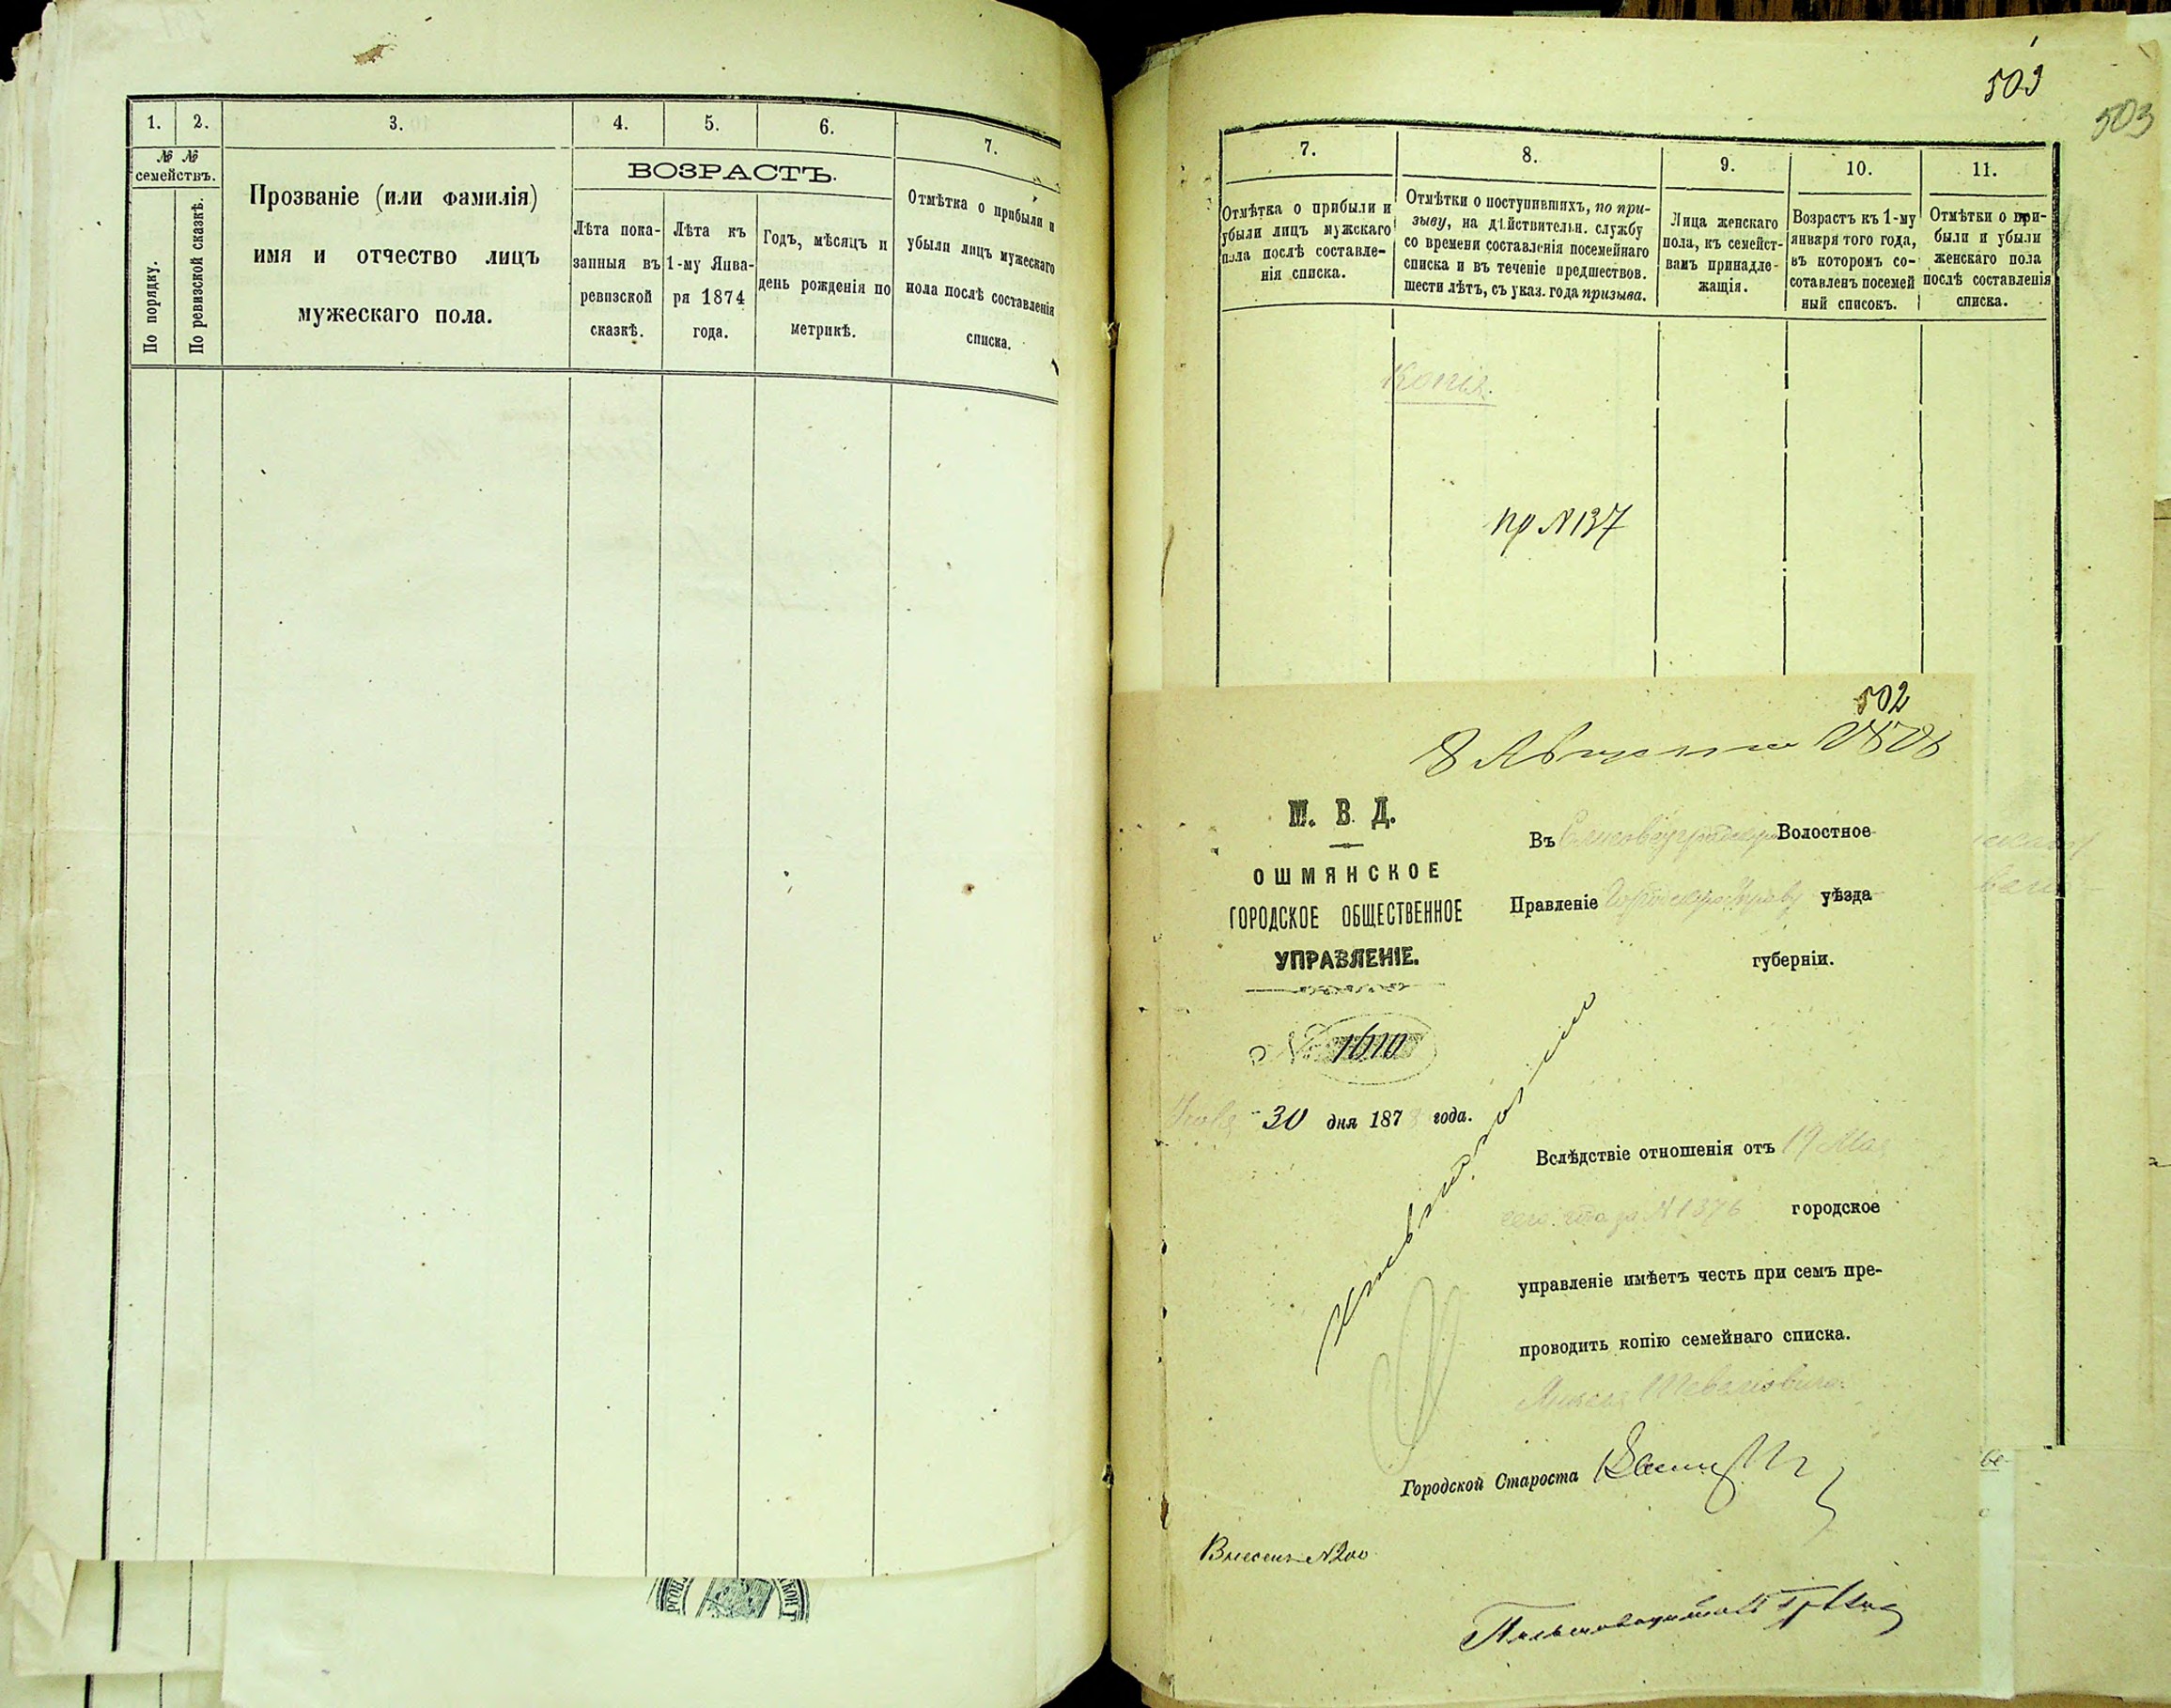 1. 2. 3. 4. 5. 6. 7.
№ №
семействъ.
По порядку.
По ревизской сказкѣ.
Прозваніе (или фамилія)
имя и отчество лицъ
мужескаго пола.
ВОЗРАСТЪ.
Лѣта пока-
занныя въ
ревизской
сказкѣ.
Лѣта къ
1-му Янва-
ря 1874
года.
Годъ, мѣсяцъ и
день рожденія по
метрикѣ.
Отмѣтка о прибыли и
убыли лицъ мужескаго
пола послѣ составленія
списка.
503
503
7. 8. 9. 10. 11.
Отмѣтка о прибыли и
убыли лицъ мужскаго
пола послѣ составле-
нія списка.
Отмѣтки о поступившихъ, по при-
зыву, на дѣйствительн. службу
со времени составленія посемейнаго
списка и въ теченіе предшествов.
шести лѣтъ, съ указ. года призыва.
Лица женскаго
пола, къ семейст-
вамъ принадле-
жащія.
Возрастъ къ 1-му
января того года,
въ которомъ со-
ставленъ посемей
ный списокъ.
Отмѣтки о при-
были и убыли
женскаго пола
послѣ составленія
списка.
Копія.
пр N 137
502
8 Августа 1878
М. В. Д.
ОШМЯНСКОЕ
ГОРОДСКОЕ ОБЩЕСТВЕННОЕ
УПРАВЛЕНІЕ.
№ 1610
30 дня 1878 года.
Въ Елисаветградскую Волостное
Правленіе Городскую Управу уѣзда
губерніи.
Вслѣдствіе отношенія отъ 19 Мая
сего года за N 1376 городское
управленіе имѣетъ честь при семъ пре-
проводить копію семейнаго списка.
Городской Староста
Внесенъ N 200